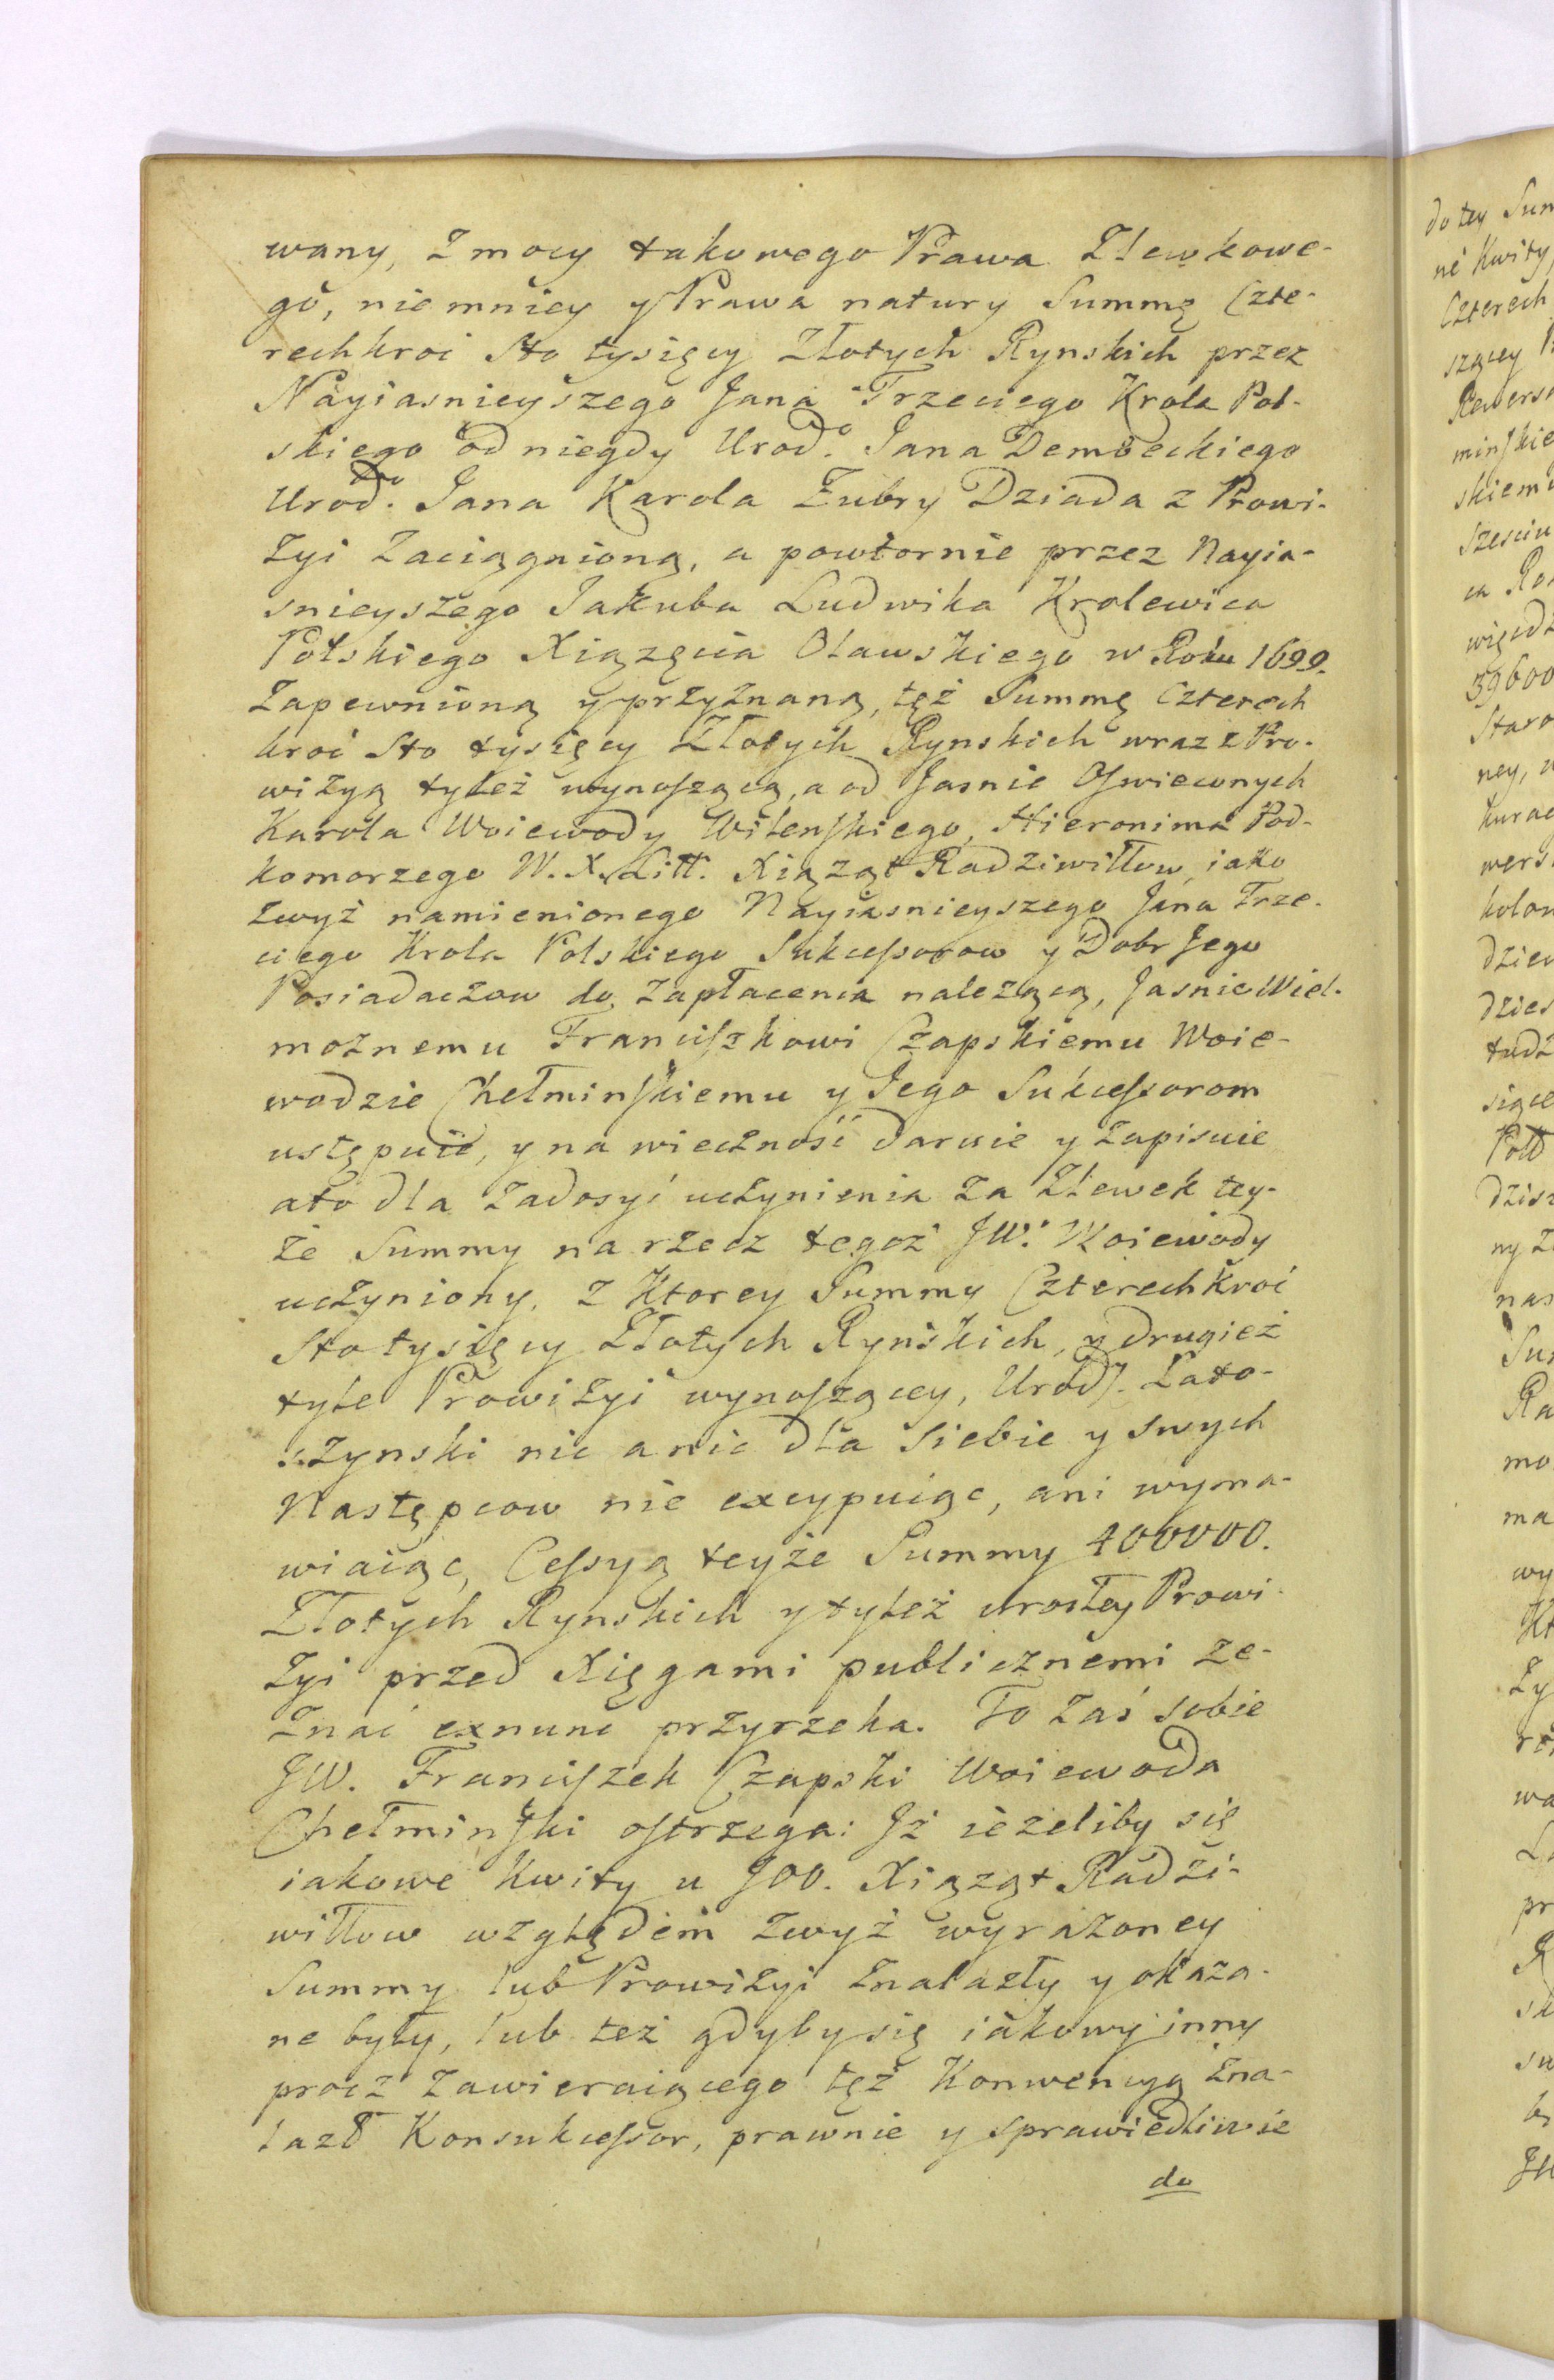 wany, z mocy takowego Prawa Zlewkowe-
go, niemniey y Prawa natury Summę Czte-
rechkroć Sto tysięcy Złotych Rynskich przez
Nayiasnieyszego Jana Trzeciego Krola Pol-
skiego od niegdy Urod.go Jana Dembeckiego
Urod.go Jana Karola Zubry Dziada z Prowi-
zyi zaciągnioną, a powtornie przez Nayia-
snieyszego Jakuba Ludwika Krolewica
Polskiego Xiążęcia Oławskiego w Roku 1699.
zapewnioną y przyznaną, tęż Summę Czterech
kroć Sto tysięcy Złotych Rynskich wraz z Pro-
wizyą tyleż wynoszącą, a od Jasnie Oswieconych
Karola Woiewody Wilenskiego, Hieronima Pod-
komorzego W. X. Litt. Xiążąt Radziwiłłow, iako
zwyż namienionego Nayiasnieyszego Jana Trze-
ciego Krola Polskiego Sukcessorow y Dobr Jego
Posiadaczow do zapłacenia należącą, Jasnie Wiel-
możnemu Franciszkowi Czapskiemu Woie-
wodzie Chełminskiemu y Jego Sukcessorom
ustępuie, y na wieczność daruie y zapisuie
a to dla zadosyć uczynienia za Zlewek tey-
że Summy na rzecz tegoż JW. Woiewody
uczyniony. Z ktorey Summy Czterechkroć
Sto tysięcy Złotych Rynskich, y drugież
tyle Prowizyi wynoszącey, Urodz. Lato-
szynski nic a nic dla siebie y swych
Następcow nie excypuiąc, ani wyma-
wiaiąc, Cessyą teyże Summy 400000.
Złotych Rynskich y tyleż urosłey Prowi-
zyi przed Xięgami publicznemi ze-
znać exnunc przyrzeka. To zaś sobie
JW. Franciszek Czapski Woiewoda
Chełminski ostrzega: Jż ieżeliby się
iakowe Kwity u JOO. Xiążąt Radzi-
wiłłow względem zwyż wyrażoney
Summy lub Prowizyi znalazły y okaza-
ne były, lub też gdyby się iakowy inny
procz zawieraiącego tęż Konwencyą zna-
lazł Konsukcessor, prawnie y sprawiedliwie
do
do tey
Kwity
Czterech
39600